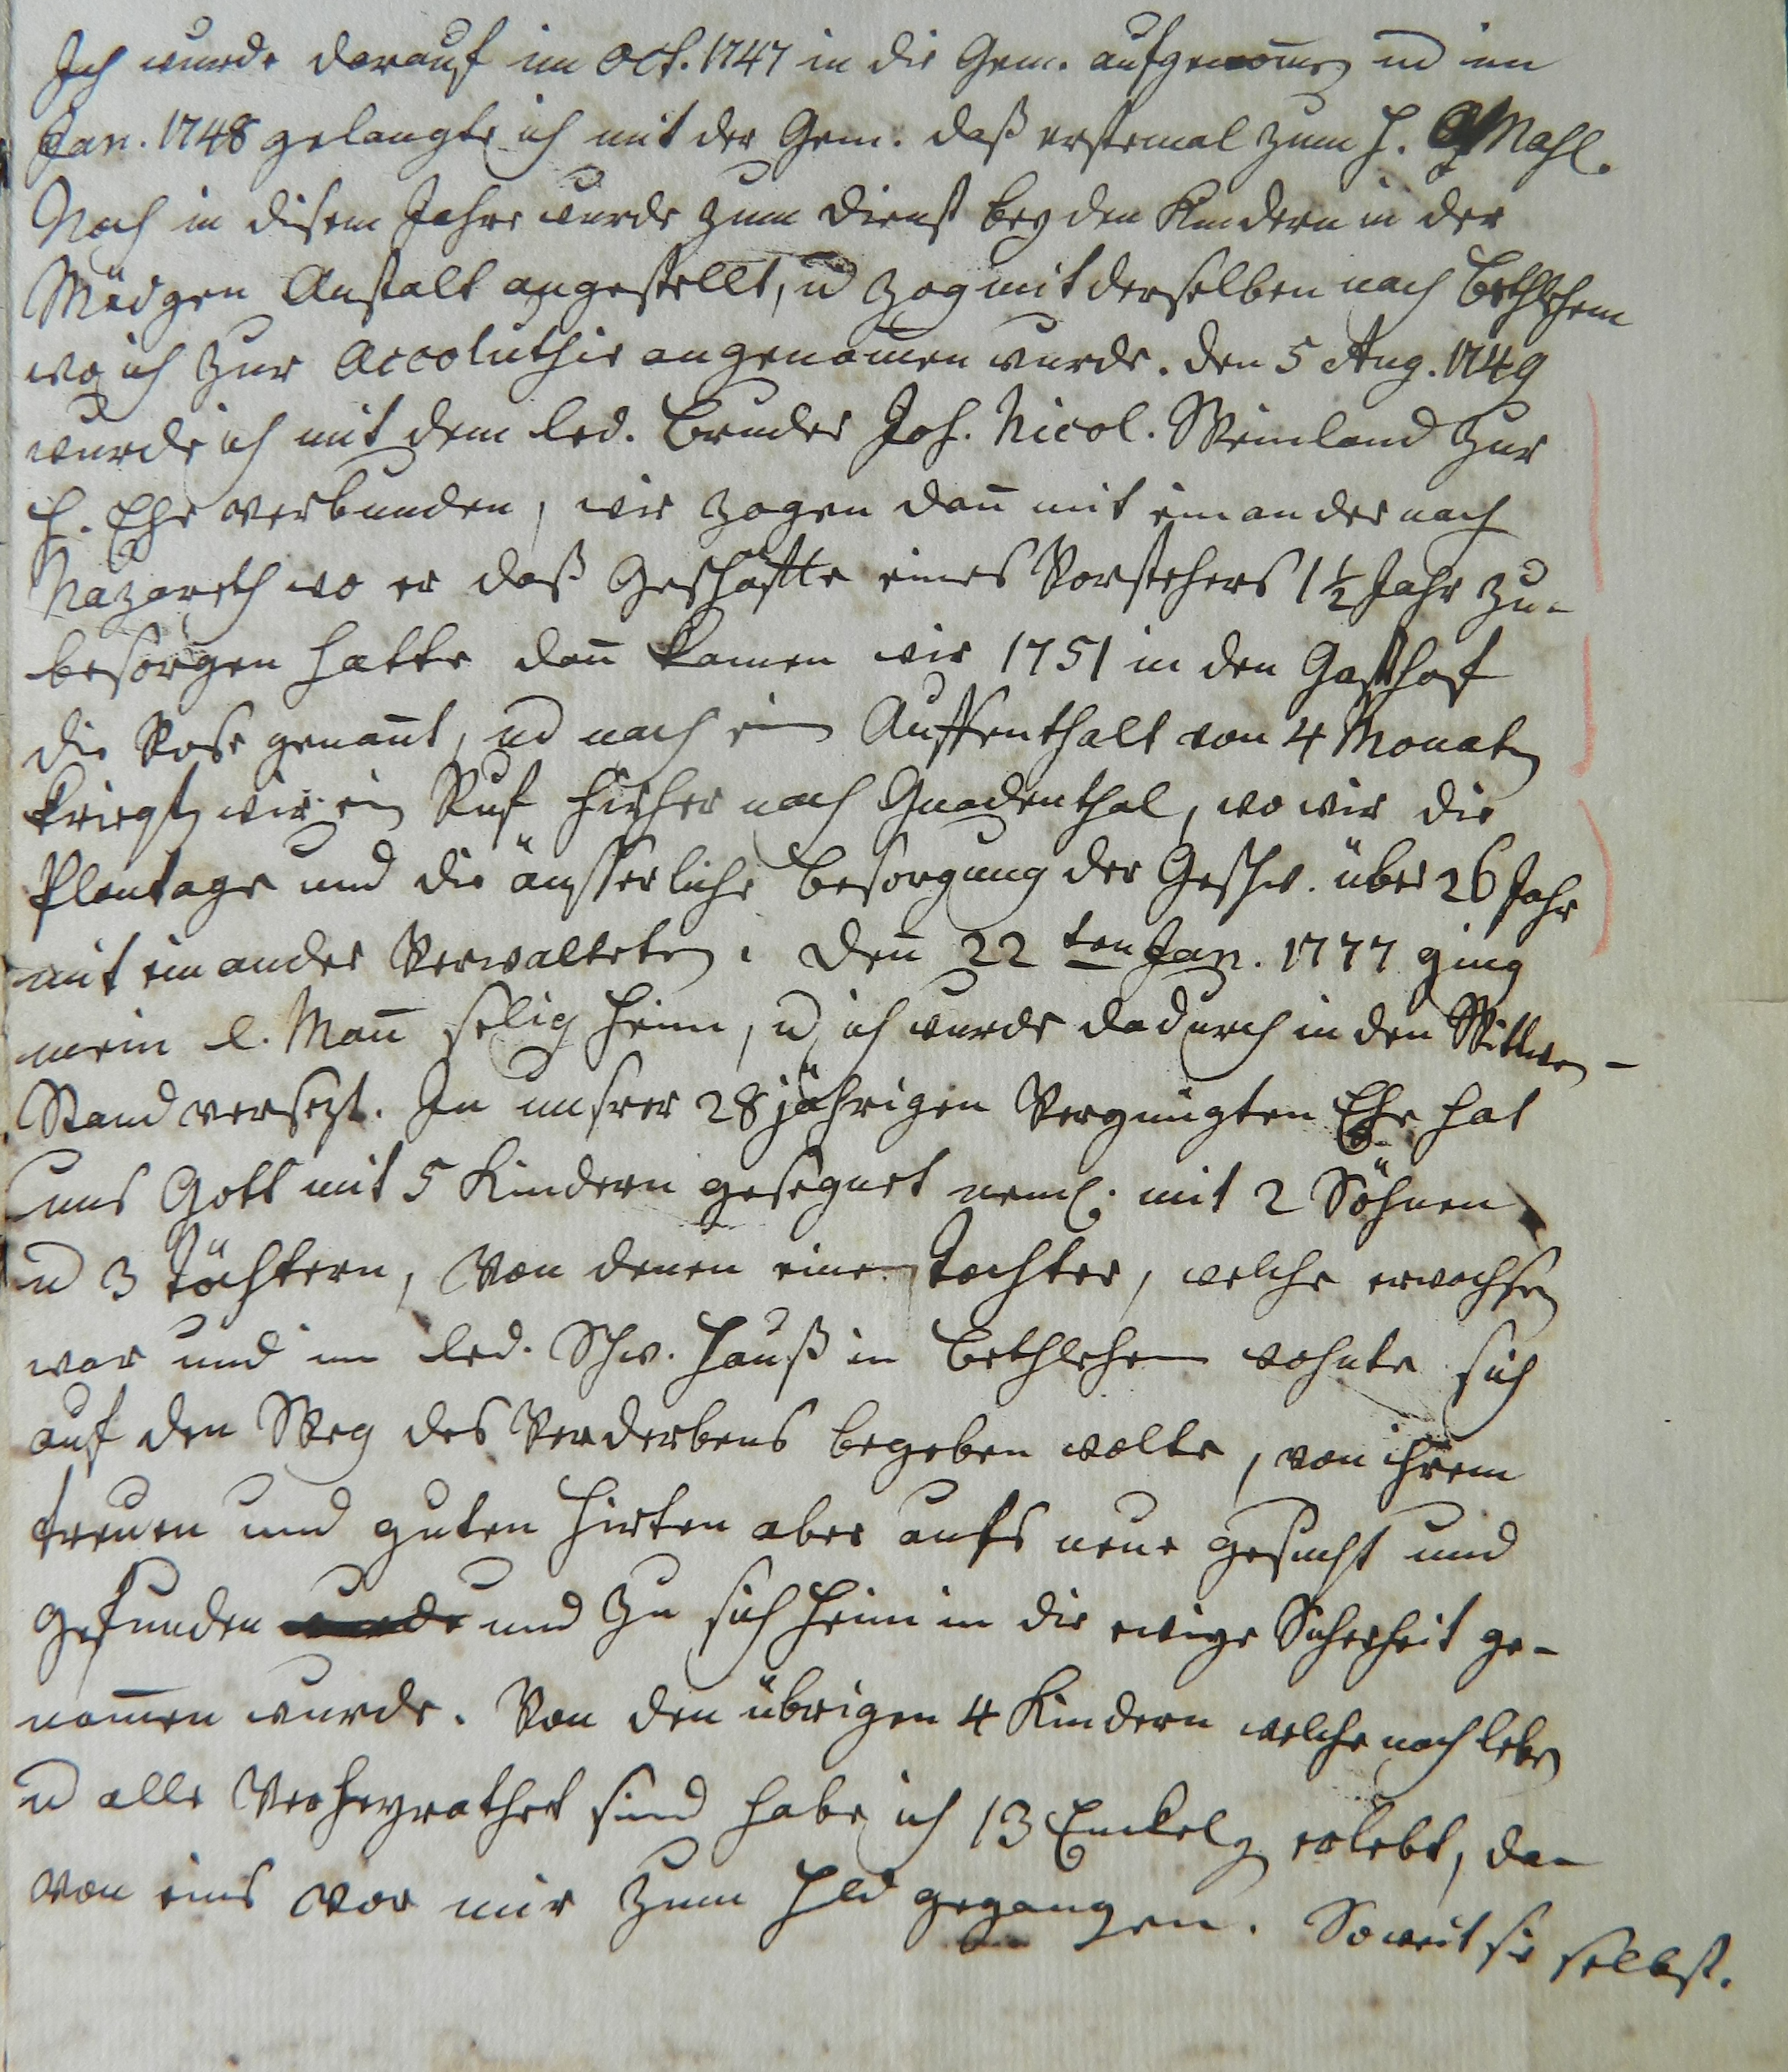 Ich wurde darauf im Oct. 1747 in die Gem. aufgenom̅en ud im
Jan. 1748 gelangte ich mit der Gem. daß erstemal zum h. Mahl.
Noch in disem Jahre wurde zum Dienst bey den Kindern in der
Mädgen Anstalt angestellt, ud zog mit derselben nach Bethlehem
wo ich zur Accoluthie angenom̅en wurde. den 5 Aug. 1749
wurde ich mit dem led. Bruder Joh. Nicol. Weinland zur
h. Ehe verbunden, wir zogen dan̅ mit einander nach
Nazareth wo er daß Geschäfte eines Vorstehers 1½ Jahr zu-
besorgen hatte dan̅ kamen wir 1751 in den Gasthof
die Rose genan̅t, ud nach ein Auffenthalt von 4 Monaten
kriegten wir ein Ruf hieher nach Gnadenthal, wo wir die
Plantage und die äusserliche Besorgung der Geschw. über 26 Jahr
mit einander Verwalteten. Den̅ 22 ten Jan. 1777 ging
mein l. Man̅ selig heim, ud ich wurde dadurch in den Wittwen-
Stand versezt. In unsrer 28 jährigen Vergnügten Ehe hat
uns Gott mit 5 Kindern gesegnet neml. mit 2 Söhnen
ud 3 Töchtern, Von denen eine Tochter, welche erwachsen
war und im led. Schw. Hauß in Bethlehem wohnte sich
auf den Weg des Verderbens begeben wolte, von ihrem
treuen und guten Hirten aber aufs neue gesucht und
gefunden wurde und zu sich heim in die ewige Sicherheit ge-
nom̅en wurde. Von den übrigen 4 Kindern welche noch leben
ud alle Verheyrathet sind habe ich 13 Enckeln erlebt, da-
von eins vor mir zum Hld gegangen. Soweit sie selbst.